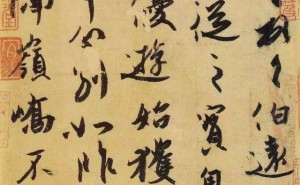 伯遠
從之寶自
優遊始獲
分別如昨
隔嶺嶠不